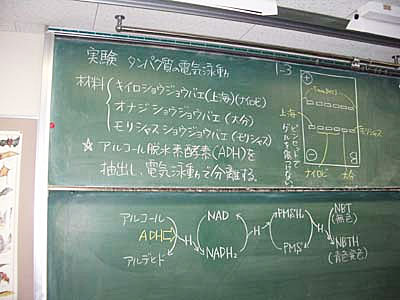 実験 タンパク質の電気泳動
1-3
材料
キイロショウジョウバエ(上海)(ナイロビ)
オナジショウジョウバエ(大分)
モリシャスショウジョウバエ(モリシャス)
☆アルコール脱水素酵素(ADH)を
抽出し、電気泳動で分離する。
+
上海
モリシャス
−
ナイロビ
大分
アルコール
ADH
アルデヒド
NAD
NADH₂
H
PMSH₂
PMS
H
NBT
(無色)
NBTH
(青色発色)